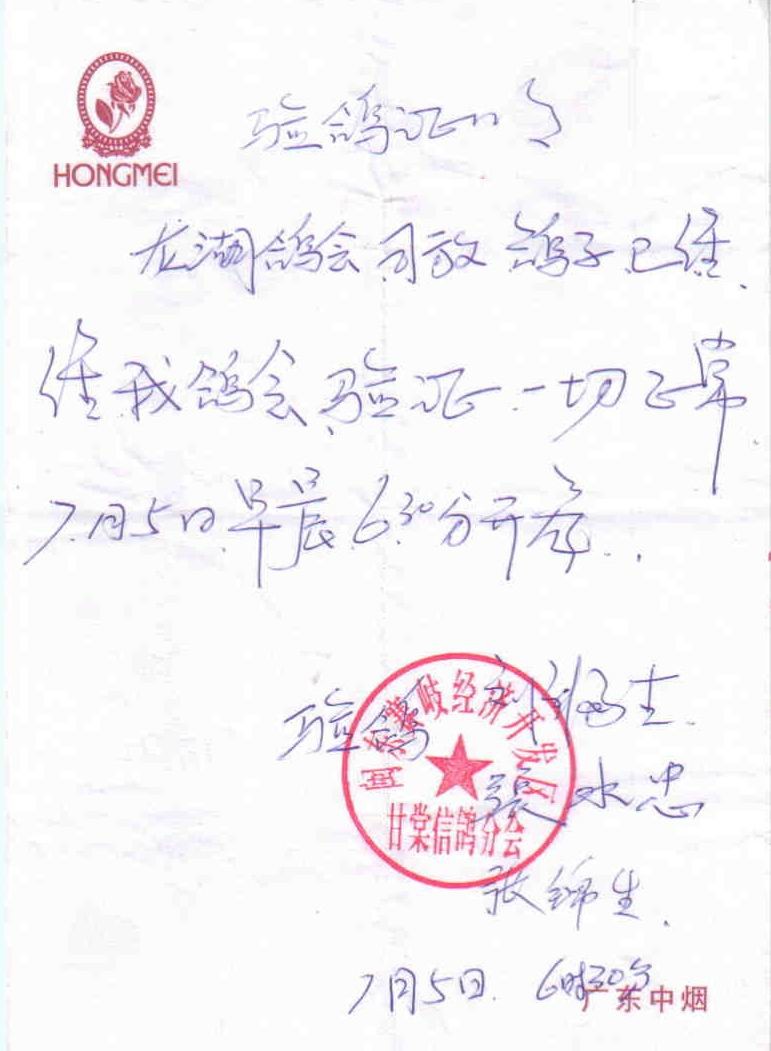 HONGMEI
验鸽证明
龙湖鸽会司放鸽子已经
经我鸽会验证一切正常
7月5日早晨6.30分开笼..
验鸽 刘
張水忠
张锦生
闽东赛岐经济开发区
甘棠信鸽分会
7月5日 6时30分
广东中烟